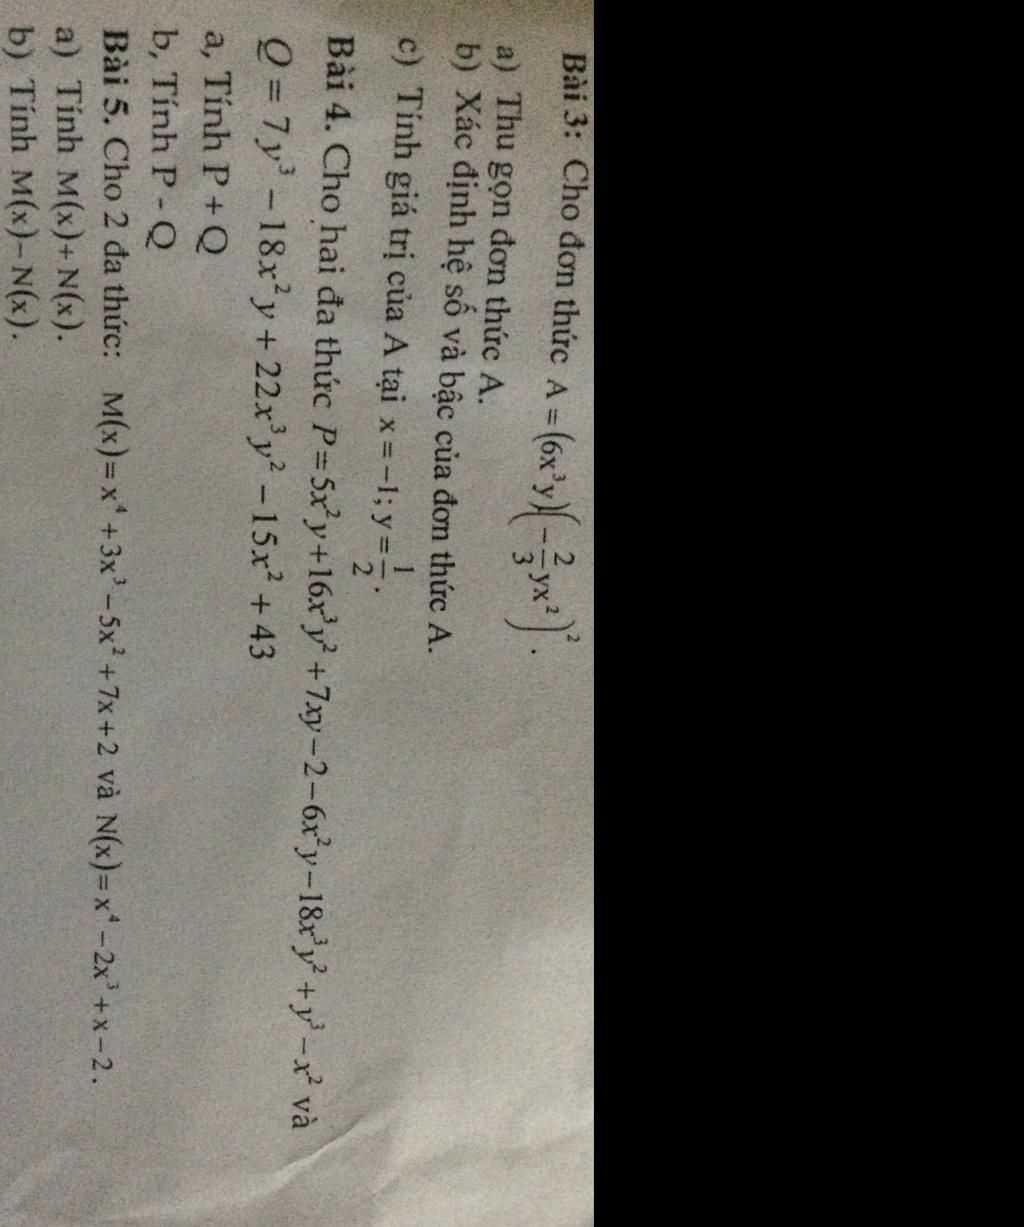 Bài 3: Cho đơn thức A = (6x³y)(-2/3 yx²)².
a) Thu gọn đơn thức A.
b) Xác định hệ số và bậc của đơn thức A.
c) Tính giá trị của A tại x = -1; y = 1/2.
Bài 4. Cho hai đa thức P = 5x²y + 16x³y² + 7xy - 2 - 6x²y - 18x³y² + y³ - x² và
Q = 7y³ - 18x²y + 22x³y² - 15x² + 43
a, Tính P + Q
b, Tính P - Q
Bài 5. Cho 2 đa thức: M(x) = x⁴ + 3x³ - 5x² + 7x + 2 và N(x) = x⁴ - 2x³ + x - 2.
a) Tính M(x) + N(x).
b) Tính M(x) - N(x).